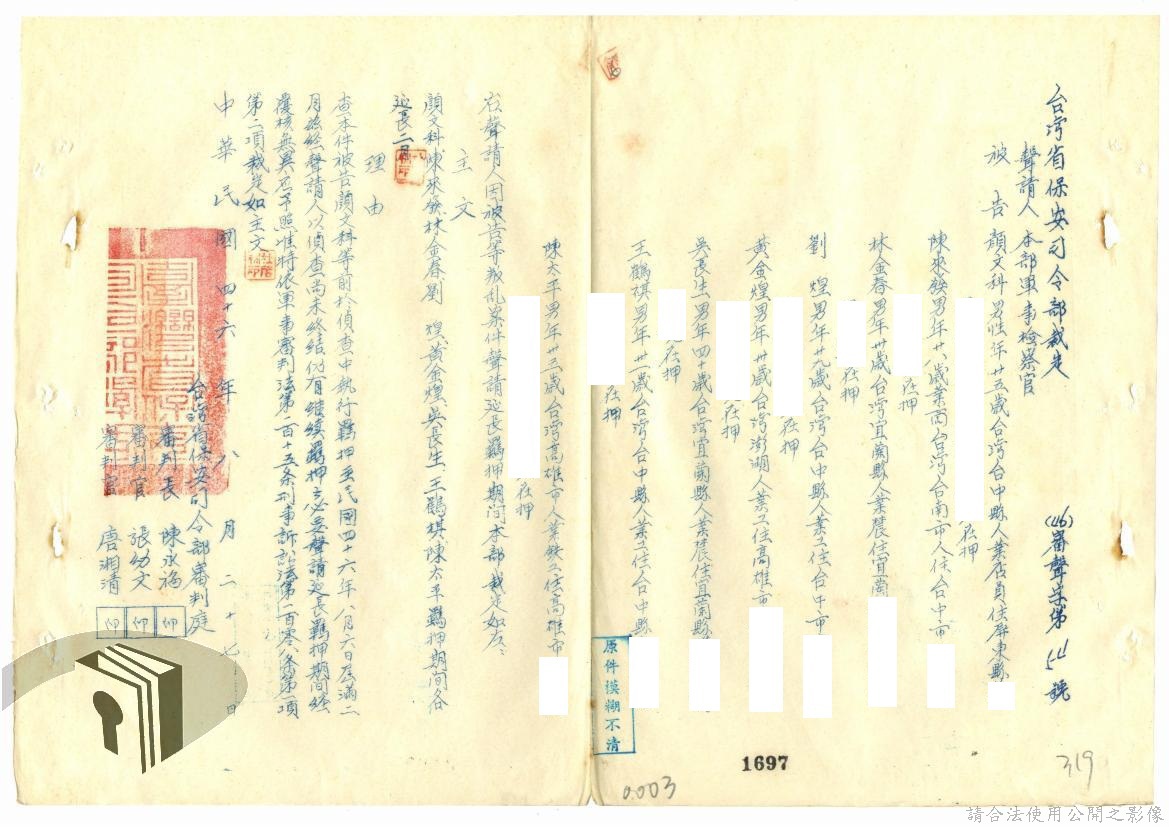 台灣省保安司令部裁定
(46)審聲字第54號
聲請人 本部軍事檢察官
被告 顏文科 男性年廿五歲台灣台中縣人業店員住屏東縣
在押
陳來發男年廿八歲業商台灣台南市人住台中市
在押
林金春男年卅歲台灣宜蘭縣人業農住宜蘭
在押
劉 煌男年廿九歲台灣台中縣人業工住台中市
在押
黃金煌男年卅歲台灣澎湖人業工住高雄市
在押
吳長生男年四十歲台灣宜蘭縣人業農住宜蘭縣
在押
王鶴祺男年卅一歲台灣台中縣人業工住台中縣
在押
陳太平男年卅三歲台灣高雄市人業 工住高雄市
在押
右聲請人因被告等叛乱案件聲請延長羈押期間本部裁定如左:
主文
顏文科陳來發林金春劉 煌黃金煌吳長生王鶴祺陳太平羈押期間各
延長二月
理由
查本件被告顏文科等前於偵查中執行羈押至民國四十六年八月六日屆滿二
月茲經聲請人以偵查尚未終結仍有继续羈押之必要聲請延長羈押期間經
覆核無異應予照准特依軍事審判法第一百十五条刑事訴訟法第一百零八条第一項
第二項裁定如主文
中華民國四十六年八月二十七日
台灣省保安司令部審判庭
審判長 陳永福 印
審判官 張幼文 印
審判官 唐湘清 印
原件模糊不清
1697
0003
319
請合法使用公開之影像